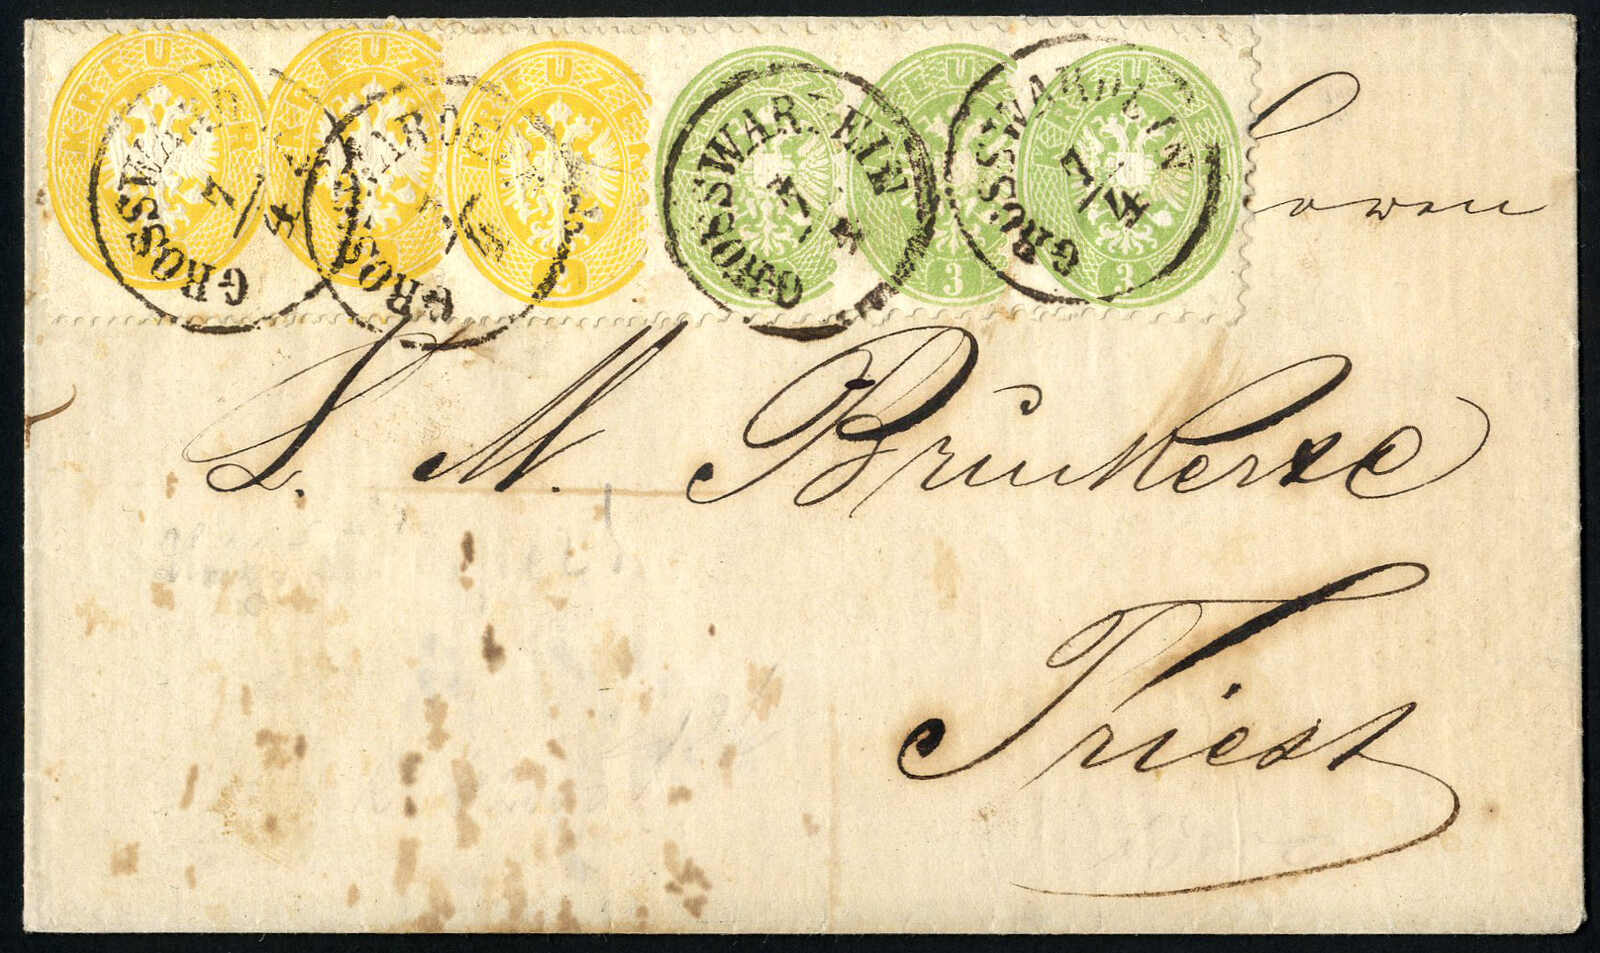 KREUZER KREUZER KREUZER KREUZER KREUZER
3 3
GROSSWARDEIN 7/4
GROSSWARDEIN 7/4
GROSSWARDEIN 7/4
GROSSWARDEIN 7/4
Herren
L. M. Brunkerze
Triest